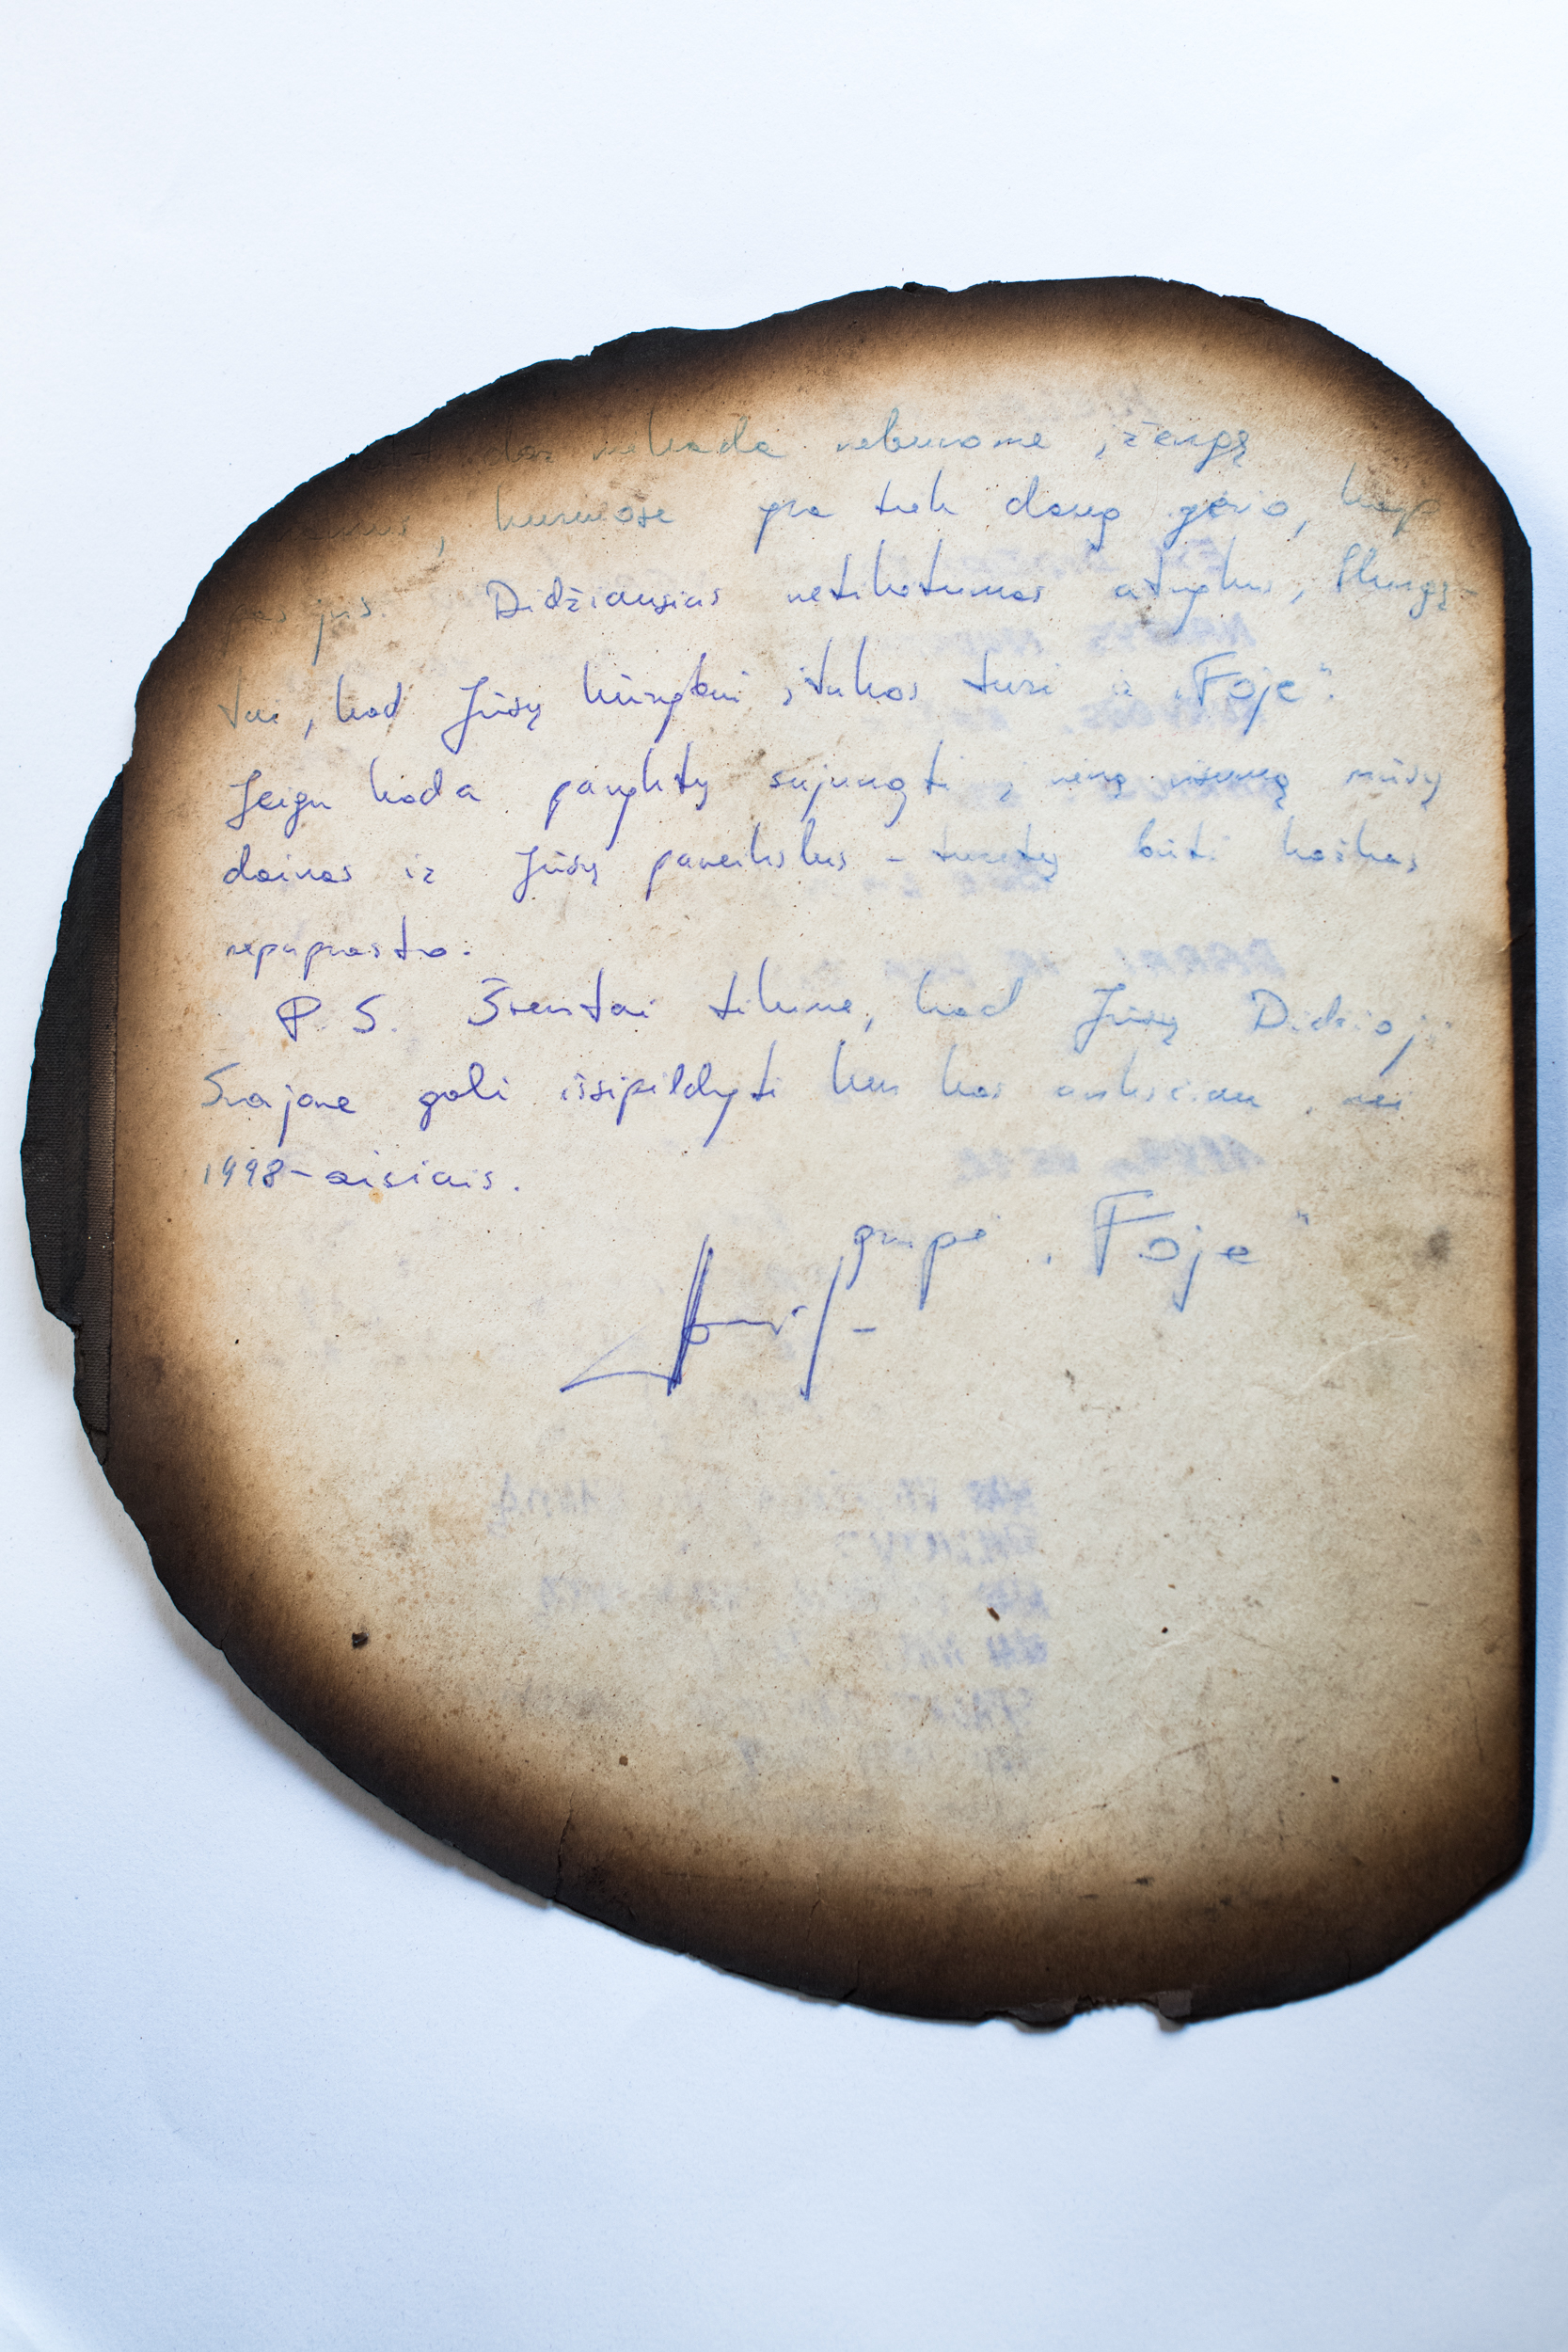 dar nekada nebuvome įžengę
namus, kuriuose yra tiek daug gėrio, kaip
pas jus. Didžiausias netikėtumas atvykus, Plungę-
tai, kad Jūsų kūrybai įtakos turi ir „Foje“.
Jeigu kada pavyktų sujungti į vieną visumą mūsų
dainas ir Jūsų paveikslus - turėtų būti kažkas
nepaprasto.
P. S. Šventai tikime, kad Jūsų Didžioji
Svajonė gali išsipildyti kur kas anksčiau, nei
1998-aisiais.
grupė „Foje“